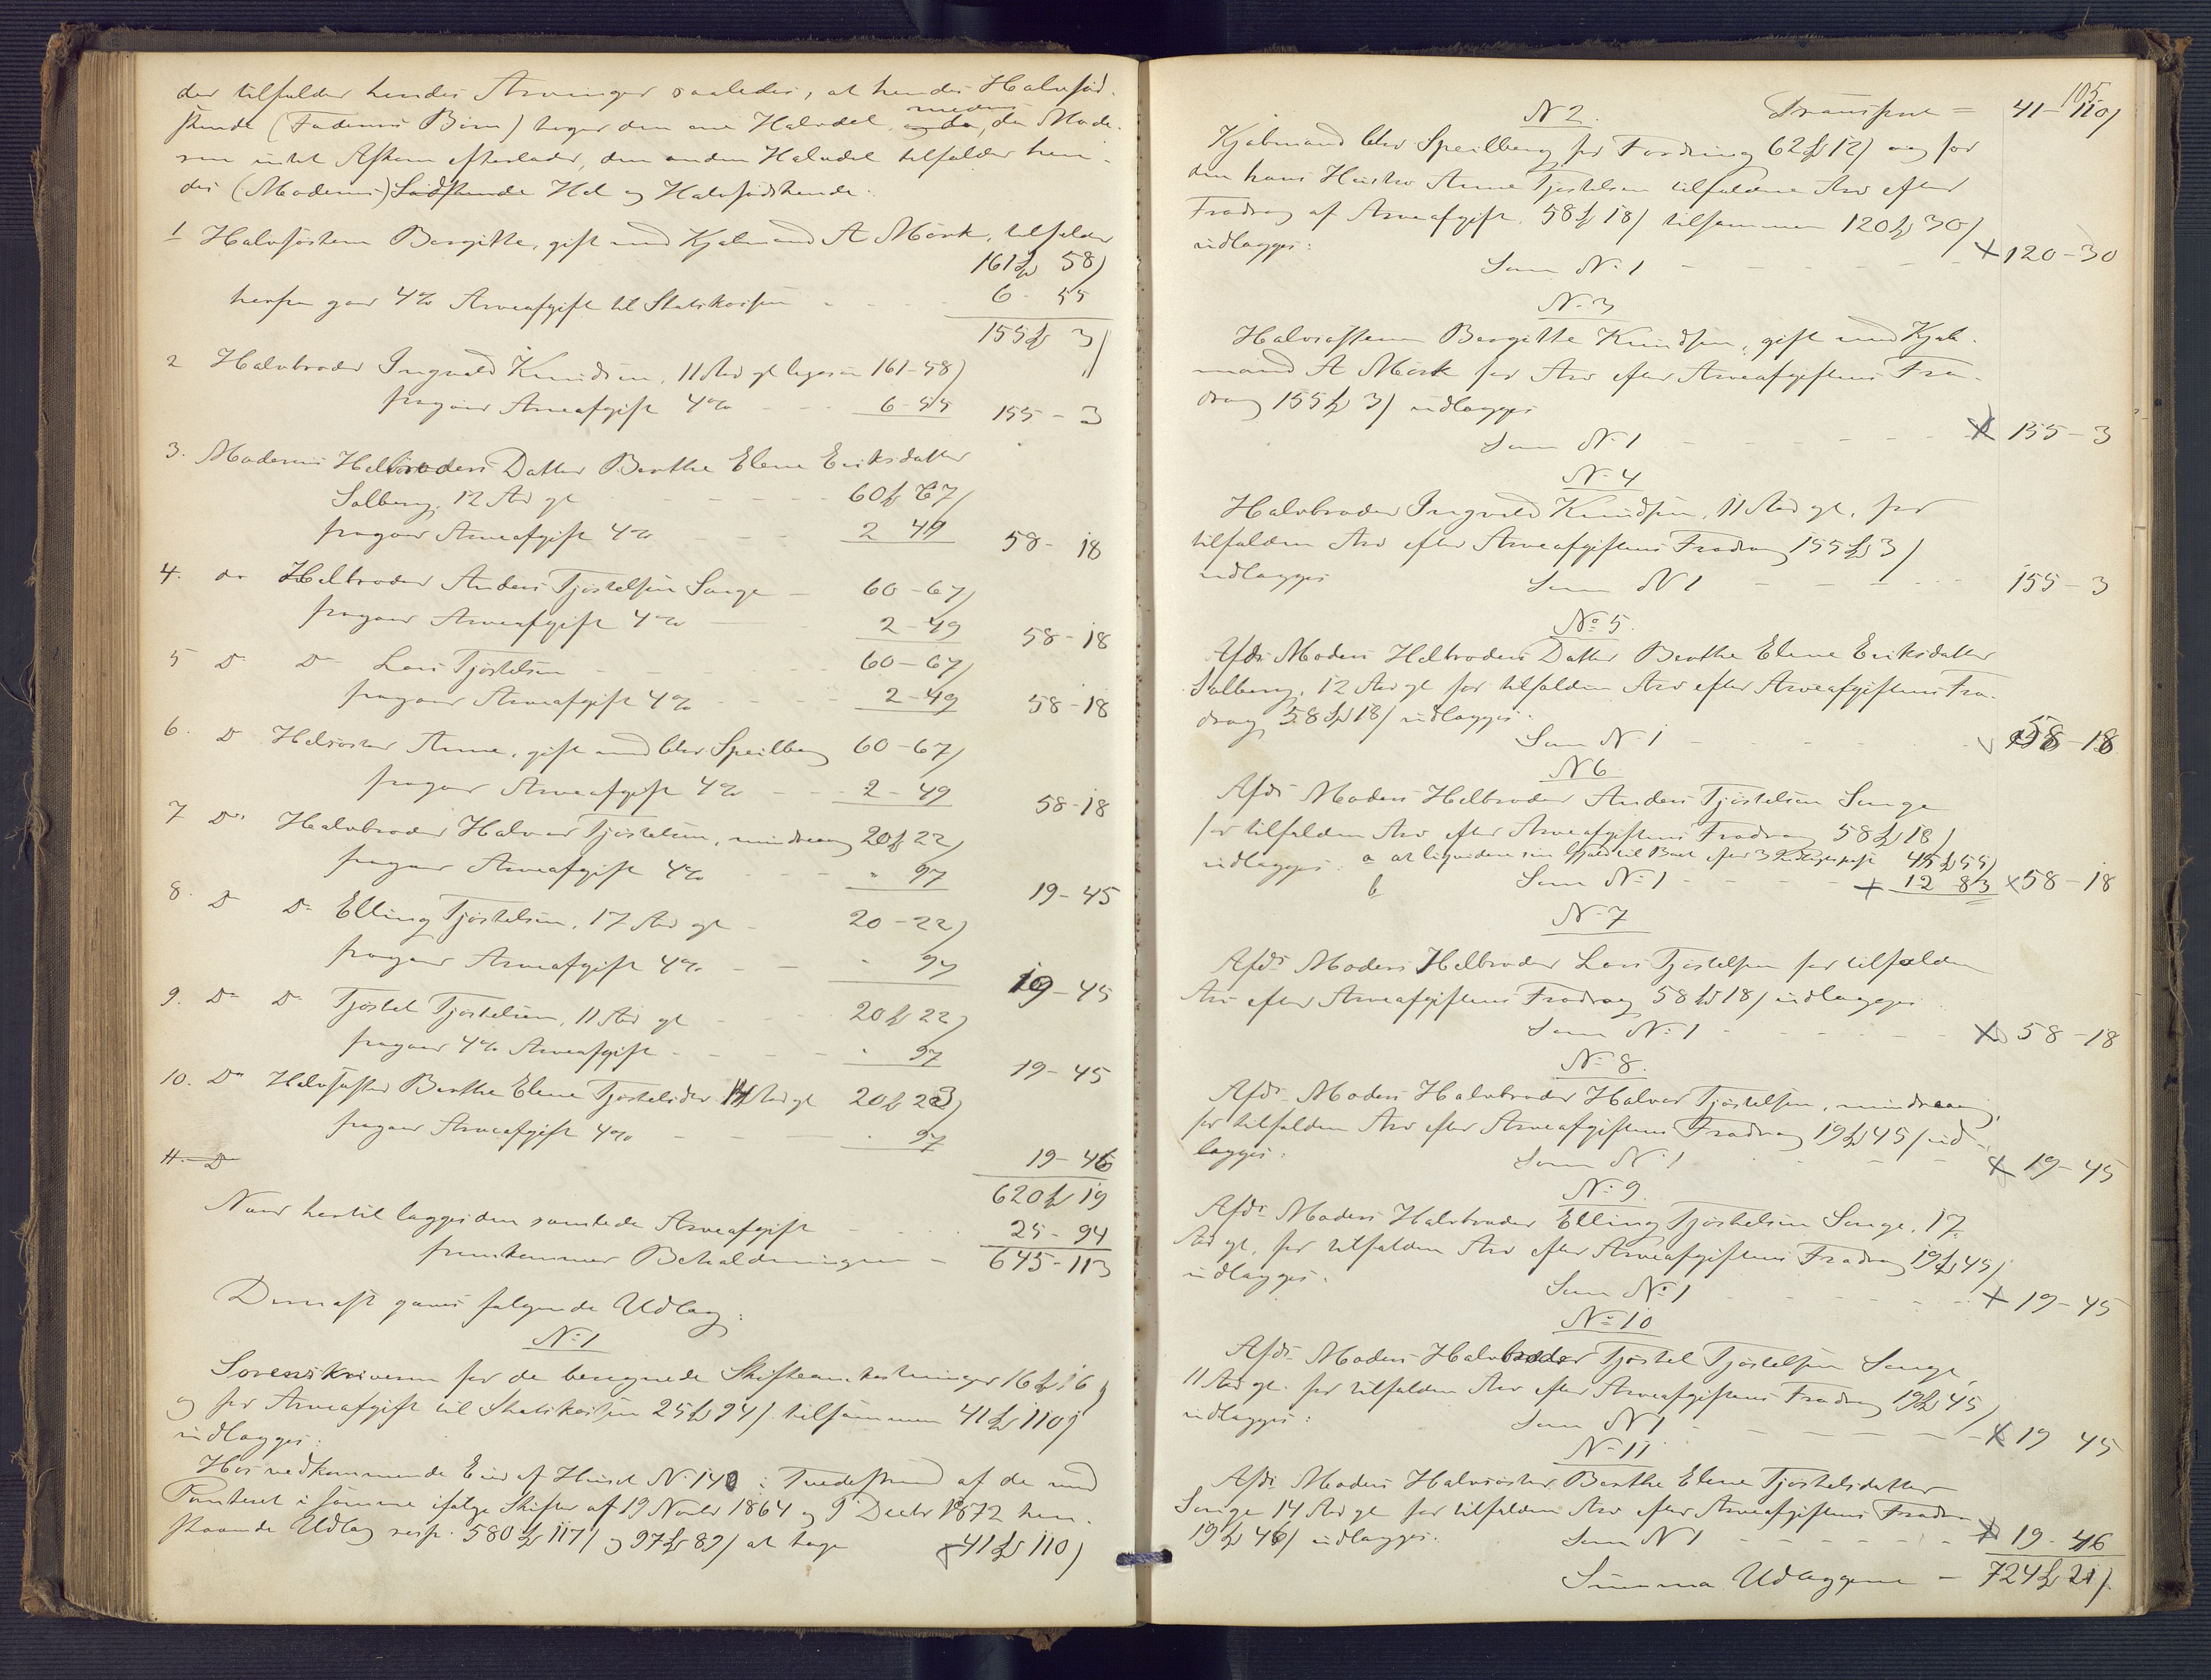 der tilfalder hendes Arvinger saaledes, at hendes Halvsød-
skende (Faderens Børn) tager den ene Halvdel, medens da, da Mode-
ren intet Afkom efterlader, den anden Halvdel tilfalder hen-
des (Moderens) Sødskende Hel og Halvsødskende.
1 Halvsøsteren Bergitte, gift med Kjøbmand A Mörk, tilfalder
161 Sp 58 /
herfra gaar 4% Arveafgift til Statskassen - 6 - 55
155 Sp 3 /
2 Halvbroder Ingvald Knudsen, 11 Aar gl ligesaa 161-58 /
fragaar Arveafgift 4% - - 6-55 155 - 3
3. Moderens Helbroders Datter Berthe Elene Eriksdatter
Solberg, 12 Aar gl - - - - 60 Sp 67 /
fragaar Arveafgift 4% - - - 2 49 58 - 18
4. do Helbroder Anders Tjøstelsen Songe - 60 - 67 /
fragaar Arveafgift 4% - - 2 - 49 58 - 18
5 Do Do Lars Tjøstelsen - - - 60 - 67 /
fragaar Arveafgift 4% - - - 2 - 49 58 - 18
6. Do Helsøster Anne, gift med Chr Speilberg 60 - 67 /
fragaar Arveafgift 4% - - - 2 - 49 58 - 18
7 Do Halvbroder Halvor Tjøstelsen, mindreaarig 20 Sp 22 /
fragaar Arveafgift 4% - - - " 97 19 - 45
8. Do Do Elling Tjøstelsen, 17 Aar gl - 20 - 22 /
fragaar Arveafgift 4% - - " 97 19 - 45
9. Do Do Tjøstel Tjøstelsen, 11 Aar gl - - 20 Sp 22 /
fragaar 4% Arveafgift - - - - " 97 19 - 45
10. Do Halvsøster Berthe Elene Tjøstelsdtr 14 Aar gl 20 Sp 23 /
fragaar Arveafgift 4% - - - - " 97
11. Do 19 - 46
620 Sp 19
Naar hertil lægges den samlede Arveafgift - 25 - 94
fremkommer Beholdningen - 645 - 113
Dernæst gaves følgende Udlæg:
No 1
Sorenskriveren for de beregnede Skifteomkostninger 16 Sp 16 /
og for Arveafgift til Statskassen 25 Sp 94 / tilsammen 41 Sp 110 /
udlægges:
Hos vedkommende Eier af Huset No 140 i Tvedestrand af de med
Panteret i samme ifølge Skifter af 19 Novbr 1864 og 9 Decbr 1872 hen-
staaende Udlæg resp. 580 Sp 117 / og 97 Sp 89 / at tage 41 Sp 110 /
105.
N 2. Transport = 41 - 110 /
Kjøbmand Chr Speilberg for Fordring 62 Sp 12 / og for
den hans Hustru Anne Tjøstelsen tilfaldne Arv efter
Fradrag af Arveafgift 58 Sp 18 / tilsammen 120 Sp 30 /
udlægges:
Som No 1 - - - - - 120 - 30
No 3
Halvsøsteren Bergitte Knudsen, gift med Kjøb-
mand A Mörk for Arv efter Arveafgiftens Fra-
drag 155 Sp 3 / udlægges
Som No 1 - - - - - - 155 - 3
No 4
Halvbroder Ingvald Knudsen, 11 Aar gl, for
tilfalden Arv efter Arveafgiftens Fradrag 155 Sp 3 /
udlægges Som N 1 - - - - - 155 - 3
No 5.
Afds Moders Helbroders Datter Berthe Elene Eriksdatter
Solberg, 12 Aar gl for tilfalden Arv efter Arveafgiftens Fra-
drag 58 Sp 18 / udlægges:
Som No 1 - - - - 58 - 18
N 6
Afds Moders Helbroder Anders Tjøstelsen Songe
for tilfalden Arv efter Arveafgiftens Fradrag 58 Sp 18 /
udlægges: a at liquidere sin Gjæld til Boet efter 3 45 Sp 55 /
b Som No 1 - - - - 12 83 58 - 18
N 7
Afds Moders Helbroder Lars Tjøstelsen for tilfalden
Arv efter Arveafgiftens Fradrag 58 Sp 18 / udlægges
Som No 1 - - - - - 58 - 18
No 8.
Afds Moders Halvbroder Halvor Tjøstelsen, mindreaarig,
for tilfalden Arv efter Arveafgiftens Fradrag 19 Sp 45 / ud-
lægges: Som N 1 - - - 19 - 45
No 9.
Afds Moders Halvbroder Elling Tjøstelsen Songe, 17
Aar gl, for tilfalden Arv efter Arveafgiftens Fradrag 19 Sp 45 /
udlægges: Som No 1 - - - - - 19 - 45
No 10
Afds Moders Halvbroder Tjøstel Tjøstelsen Songe,
11 Aar gl. for tilfalden Arv efter Arveafgiftens Fradrag 19 Sp 45 /
udlægges: Som N 1 - - - - - - 19 45
N 11
Afds Moders Halvsøster Berthe Elene Tjøstelsdatter
Songe 14 Aar gl for tilfalden Arv efter Arveafgiftens Fradrag
19 Sp 46 / udlægges. Som N 1 - - - - - 19 - 46
Summa Udlæggene - 724 Sp 21 /.